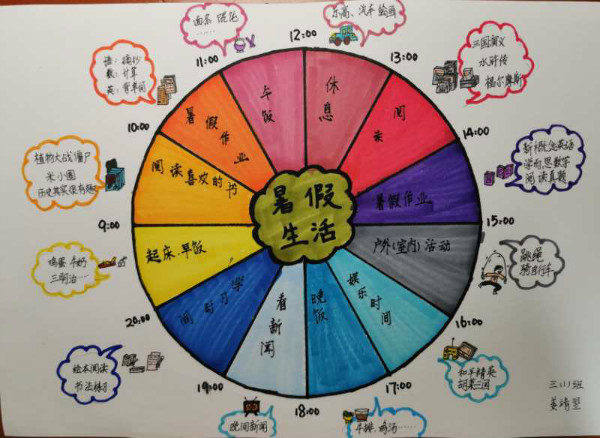 面条 馄饨
乐高、汽车 绘画
12:00
语：摘抄
数：计算
英：背单词
11:00
13:00
三国演义
水浒传
福尔摩斯
午饭
休息
暑假作业
阅读
10:00
14:00
植物大战僵尸
米小圈
历史其实很有趣
阅读喜欢的书
暑假作业
新概念英语
学而思数学
阅读真题
暑假
生活
9:00
15:00
鸡蛋 牛奶
三明治……
起床、早饭
户外(室内)活动
跳绳
骑自行车
学习时间
看新闻
晚饭
娱乐时间
20:00
16:00
绘本阅读
书法练习
和平精英
胡莱三国
三(1)班
19:00
17:00
18:00
晚间新闻
牛排、鸡汤……